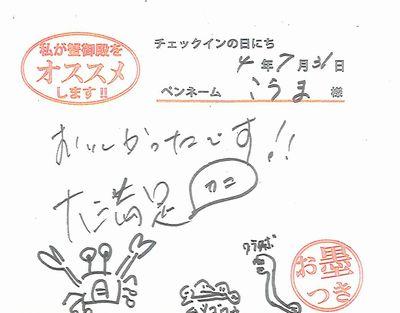 私が蟹御殿を
オススメ
します!!
チェックインの日にち
4年7月31日
ペンネーム こうま 様
おいしかったです!!
大満足
カニ
ワラスボ
お墨
つき